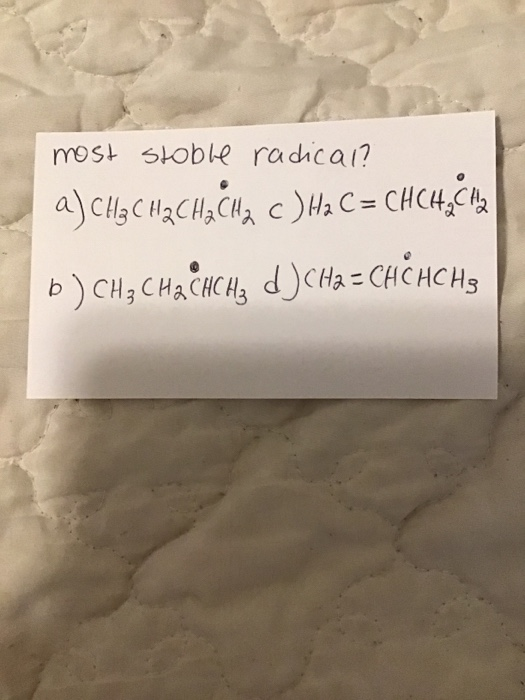 most stable radical?
a) CH₃CH₂CH₂ĊH₂ c) H₂C=CHCH₂ĊH₂
b) CH₃CH₂ĊHCH₃ d) CH₂=CHĊHCH₃